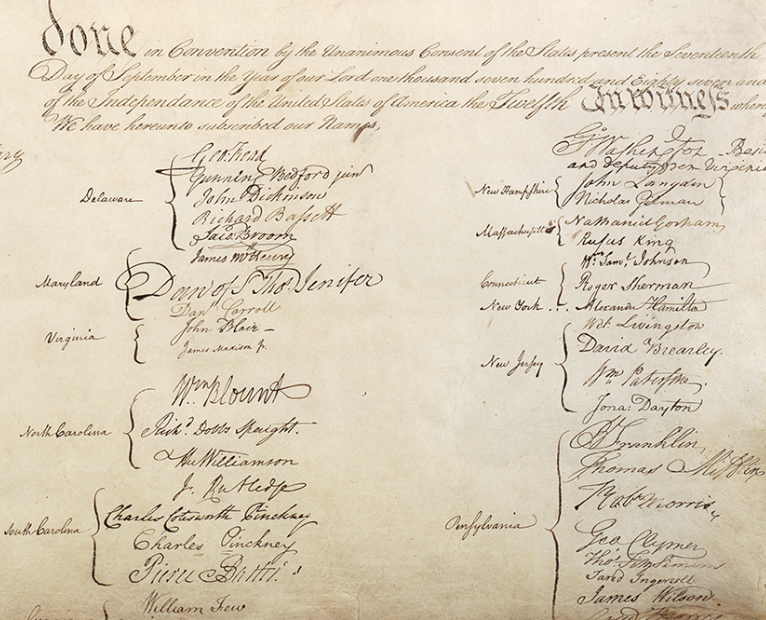 done in Convention by the Unanimous Consent of the States present the Seventeenth
Day of September in the Year of our Lord one thousand seven hundred and Eighty seven and
of the Independance of the United States of America the Twelfth In witness
We have hereunto subscribed our Names,
Delaware
Geo: Read
Gunning Bedford jun
John Dickinson
Richard Bassett
Jaco: Broom
Maryland
James McHenry
Dan of St Thos. Jenifer
Danl Carroll
Virginia
John Blair—
James Madison Jr.
North Carolina
Wm Blount
Richd. Dobbs Spaight.
Hu Williamson
South Carolina
J. Rutledge
Charles Cotesworth Pinckney
Charles Pinckney
Pierce Butler.
William Few
Go. Washington
and deputy from Virginia
New Hampshire
John Langdon
Nicholas Gilman
Massachusetts
Nathaniel Gorham
Rufus King
Connecticut
Wm. Saml. Johnson
Roger Sherman
New York . . . Alexander Hamilton
New Jersey
Wil: Livingston
David Brearley.
Wm. Paterson.
Jona: Dayton
Pensylvania
B Franklin
Thomas Mifflin
Robt Morris
Geo. Clymer
Thos. FitzSimons
Jared Ingersoll
James Wilson.